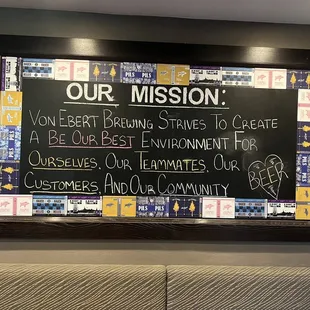 OUR MISSION:
VON EBERT BREWING STRIVES TO CREATE
A BE OUR BEST ENVIRONMENT FOR
OURSELVES, OUR TEAMMATES, OUR
CUSTOMERS, AND OUR COMMUNITY
BEER
PILS
PILS
PILS
PILS